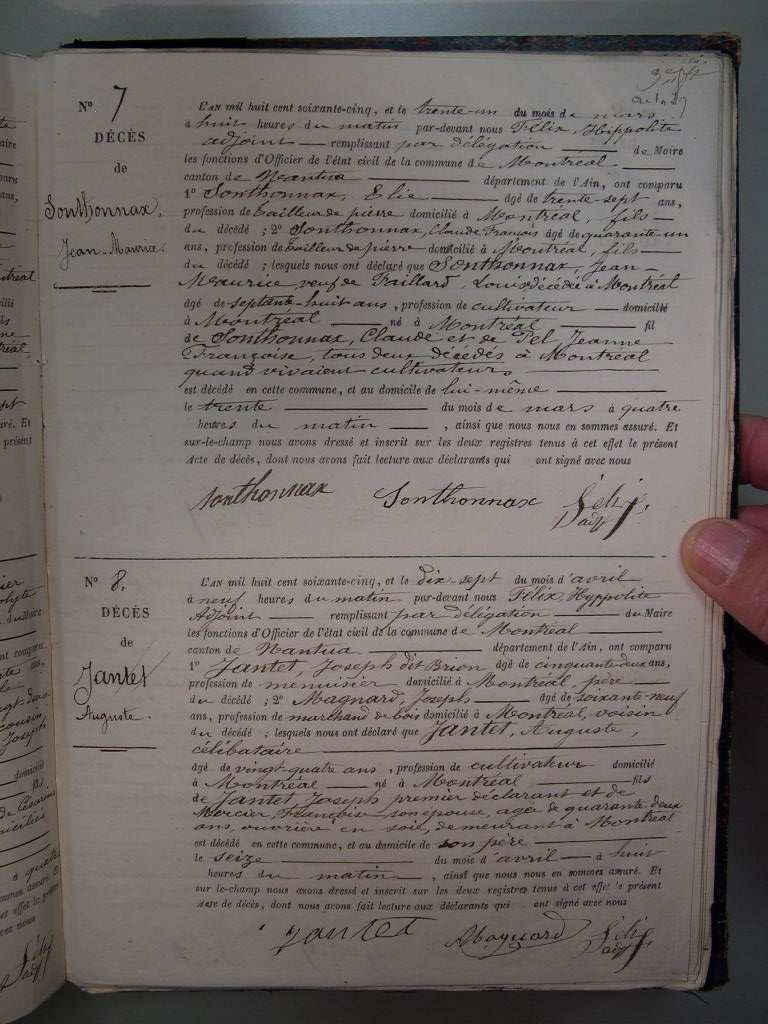 N° 7
DÉCÈS
de
Sonthonnax,
Jean-Maurice.
L'AN mil huit cent soixante-cinq, et le trente-un du mois de mars
à huit heures du matin par-devant nous Félix, Hippolite
adjoint — remplissant par délégation — de Maire
les fonctions d'Officier de l'état civil de la commune de Montréal
canton de Nantua — département de l'Ain, ont comparu
1° Sonthonnax, Elie — âgé de trente-sept ans,
profession de tailleur de pierre domicilié à Montréal, fils —
du décédé ; 2° Sonthonnax, Claude François âgé de quarante-un
ans, profession de tailleur de pierre domicilié à Montréal, fils —
du décédé ; lesquels nous ont déclaré que Sonthonnax, Jean-
Maurice, veuf de Taillard, Louise décédée à Montréal
âgé de septante-huit ans, profession de cultivateur — domicilié
à Montréal — né à Montréal — fil
de Sonthonnax, Claude et de Pel, Jeanne
Françoise, tous deux décédés à Montréal
quand vivaient cultivateurs —
est décédé en cette commune, et au domicile de lui-même —
le trente — du mois de mars à quatre
heures du matin —, ainsi que nous nous en sommes assuré. Et
sur-le-champ nous avons dressé et inscrit sur les deux registres tenus à cet effet le présent
Acte de décès, dont nous avons fait lecture aux déclarants qui ont signé avec nous
Sonthonnax Sonthonnax Félix
adj
N° 8.
DÉCÈS
de
Jantet
Auguste.
L'AN mil huit cent soixante-cinq, et le dix-sept du mois d'avril
à neuf heures du matin par-devant nous Félix Hyppolite
Adjoint — remplissant par délégation — du Maire
les fonctions d'Officier de l'état civil de la commune de Montréal —
canton de Nantua — département de l'Ain, ont comparu
1° Jantet, Joseph dit Brion âgé de cinquante deux ans,
profession de menuisier domicilié à Montréal, père —
du décédé ; 2° Magnard, Joseph — âgé de soixante-neuf
ans, profession de marchand de bois domicilié à Montréal, voisin
du décédé ; lesquels nous ont déclaré que Jantet, Auguste,
célibataire —
âgé de vingt-quatre ans, profession de cultivateur domicilié
à Montréal — né à Montréal — fils
de Jantet Joseph premier déclarant et de
Mercier, Françoise son épouse, agée de quarante deux
ans, ouvrière en soie, demeurant à Montréal
est décédé en cette commune, et au domicile de son père —
le seize — du mois d'avril — à huit
heures du matin —, ainsi que nous nous en sommes assuré. Et
sur le-champ nous avons dressé et inscrit sur les deux registres tenus à cet effet le présent
Acte de décès, dont nous avons fait lecture aux déclarants qui ont signé avec nous
Jantet Magnard Félix
adj